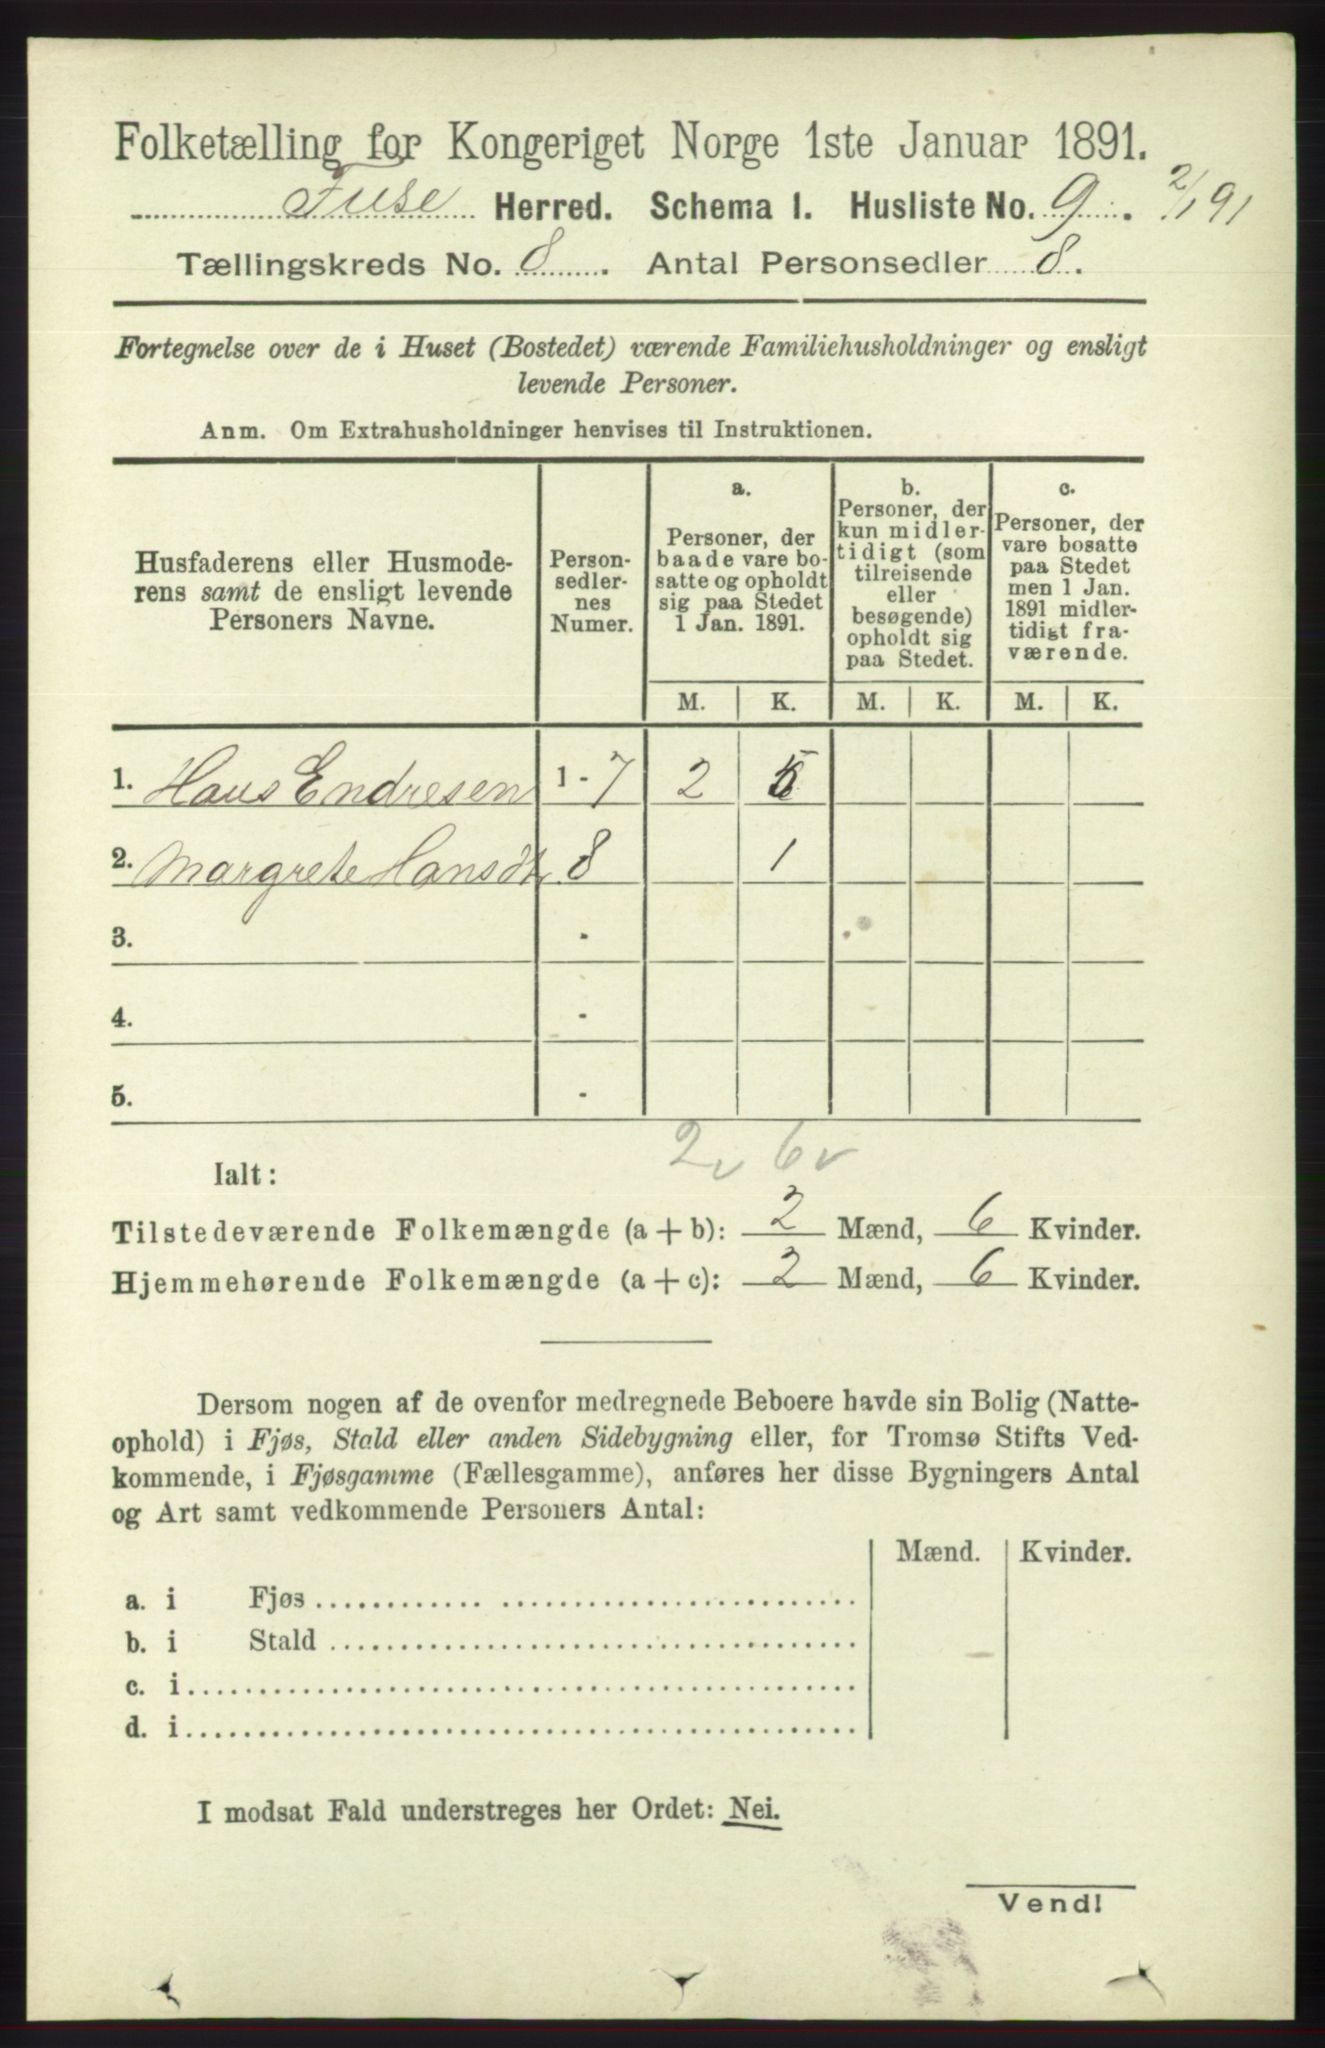 Folketælling for Kongeriget Norge 1ste Januar 1891.
Fuse Herred. Schema 1. Husliste No. 9. 2/1 91
Tællingskreds No. 8. Antal Personsedler 8.
Fortegnelse over de i Huset (Bostedet) værende Familiehusholdninger og ensligt
levende Personer.
Anm. Om Extrahusholdninger henvises til Instruktionen.
Husfaderens eller Husmode-
rens samt de ensligt levende
Personers Navne.
Person-
sedler-
nes
Numer.
a.
Personer, der
baade vare bo-
satte og opholdt
sig paa Stedet
1 Jan. 1891.
b.
Personer, der
kun midler-
tidigt (som
tilreisende
eller
besøgende)
opholdt sig
paa Stedet.
c.
Personer, der
vare bosatte
paa Stedet
men 1 Jan.
1891 midler-
tidigt fra-
værende.
M. K. M. K. M. K.
1. Hans Endresen 1 - 7 2 5
2. Margrete Hansdtr 8 1
3. -
4. -
5. -
2 v 6 v
Ialt:
Tilstedeværende Folkemængde (a + b): 2 Mænd, 6 Kvinder.
Hjemmehørende Folkemængde (a + c): 2 Mænd, 6 Kvinder.
Dersom nogen af de ovenfor medregnede Beboere havde sin Bolig (Natte-
ophold) i Fjøs, Stald eller anden Sidebygning eller, for Tromsø Stifts Ved-
kommende, i Fjøsgamme (Fællesgamme), anføres her disse Bygningers Antal
og Art samt vedkommende Personers Antal:
Mænd. Kvinder.
a. i Fjøs
b. i Stald
c. i
d. i
I modsat Fald understreges her Ordet: Nei.
Vend!